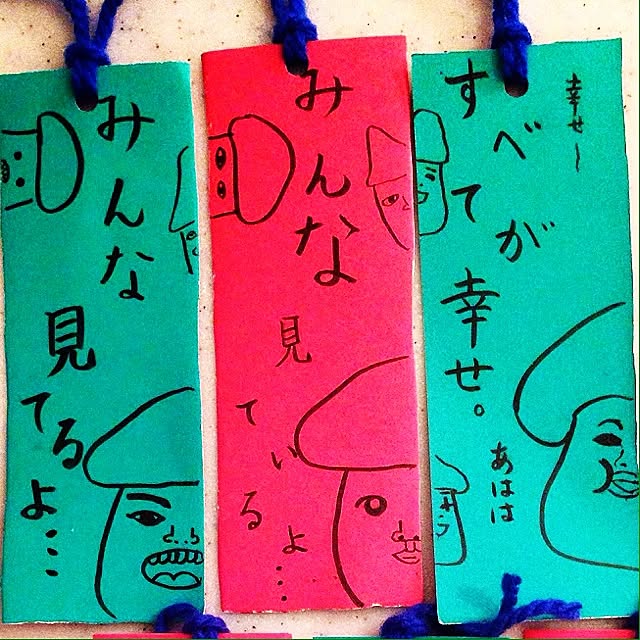 みんな
見てるよ...
みんな
見ているよ...
幸せ〜
すべてが
幸せ。
あはは